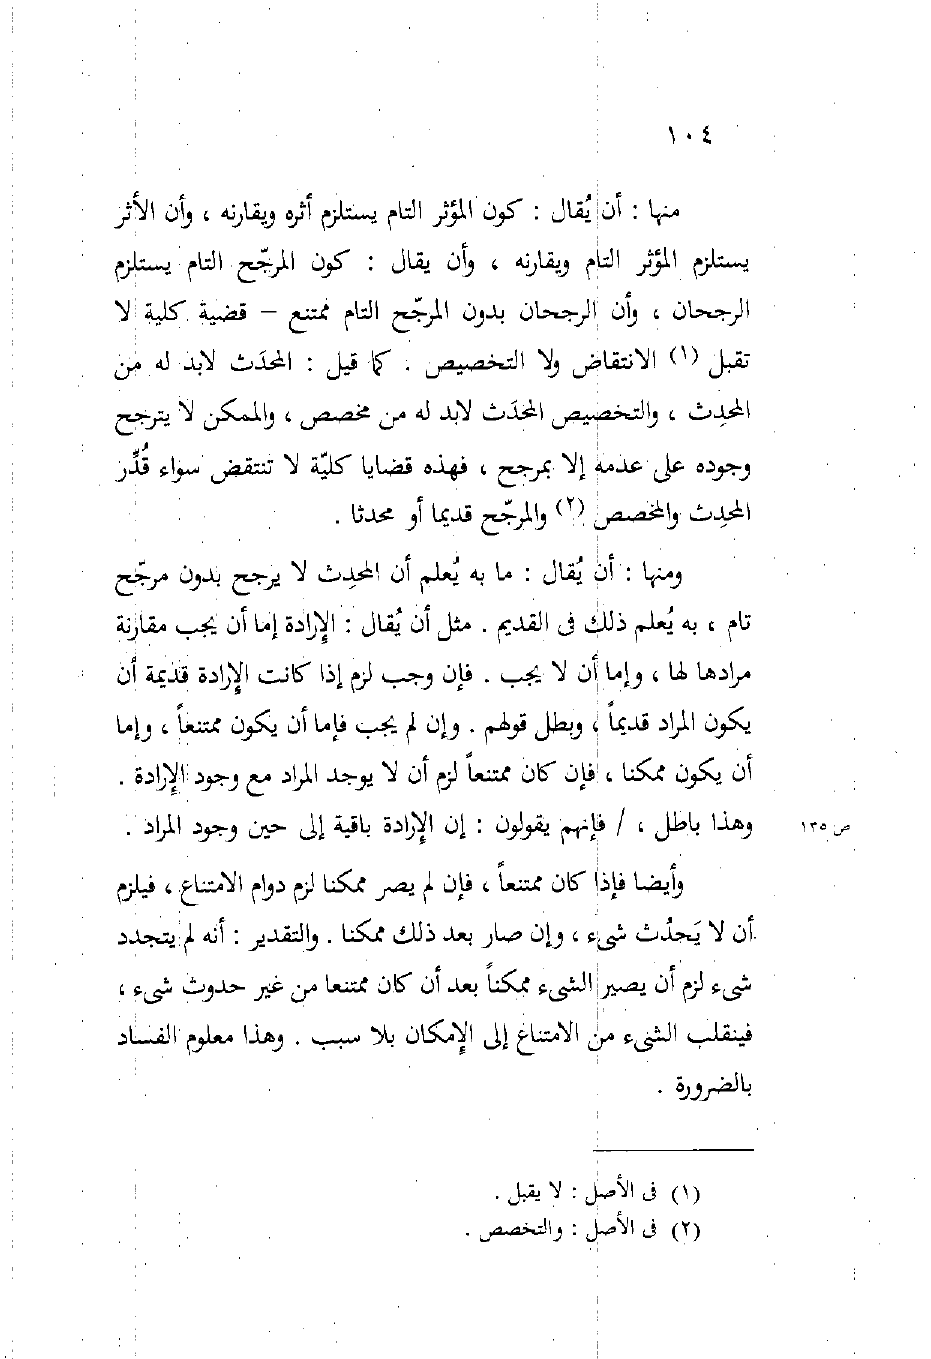 ١٠٤
منها : أن يُقال : كون المؤثر التام يستلزم أثره ويقارنه ، وأن الأثر
يستلزم المؤثر التام ويقارنه ، وأن يقال : كون المرجّح التام يستلزم
الرجحان ، وأن الرجحان بدون المرجّح التام ممتنع – قضية كلية لا
تقبل (١) الانتقاض ولا التخصيص . كما قيل : المحدَث لابد له من
المحدِث ، والتخصيص المحدَث لابد له من مخصص ، والممكن لا يترجح
وجوده على عدمه إلا بمرجح ، فهذه قضايا كليّة لا تنتقض سواء قُدِّر
المحدِث والمخصص (٢) والمرجّح قديما أو محدثا .
ومنها : أن يُقال : ما به يُعلم أن المحدِث لا يرجح بدون مرجّح
تام ، به يُعلم ذلك فى القديم . مثل أن يُقال : الإرادة إما أن يجب مقارنة
مرادها لها ، وإما أن لا يجب . فإن وجب لزم إذا كانت الإرادة قديمة أن
يكون المراد قديماً ، وبطل قولهم . وإن لم يجب فإما أن يكون ممتنعاً ، وإما
أن يكون ممكنا ، فإن كان ممتنعاً لزم أن لا يوجد المراد مع وجود الإرادة .
وهذا باطل ، / فإنهم يقولون : إن الإرادة باقية إلى حين وجود المراد . ص ١٣٥
وأيضا فإذا كان ممتنعاً ، فإن لم يصر ممكنا لزم دوام الامتناع ، فيلزم
أن لا يَحدُث شىء ، وإن صار بعد ذلك ممكنا . والتقدير : أنه لم يتجدد
شىء لزم أن يصير الشىء ممكناً بعد أن كان ممتنعا من غير حدوث شىء ،
فينقلب الشىء من الامتناع إلى الإمكان بلا سبب . وهذا معلوم الفساد
بالضرورة .
(١) فى الأصل : لا يقبل .
(٢) فى الأصل : والتخصص .